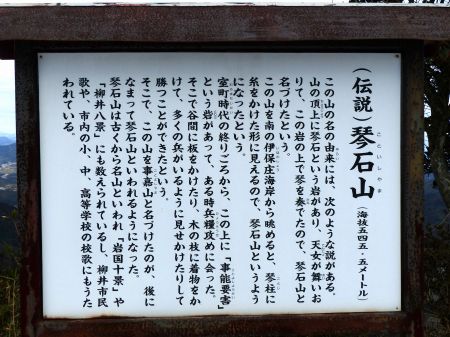 (伝説)琴石山(海抜五四五・五メートル)
ことといしやま
この山の名の由来には、次のような説がある。
山の頂上に琴石という岩があり、天女が舞いお
りて、この岩の上で琴を奏でたので、琴石山と
名づけたという。
この山を南の伊保庄海岸から眺めると、琴柱に
糸をかけた形に見えるので、琴石山というよう
になったという。
室町時代の終りごろから、この上に「事能要害」
という砦があって、ある時兵糧攻めに会った。
そこで谷間に板をかけたり、木の枝に着物をか
けて、多くの兵がいるように見せかけたりして
勝つことができたという。
そこで、この山を事嘉山と名づけたのが、後に
なまって琴石山といわれるようになった。
琴石山は古くから名山といわれ「岩国十景」や
「柳井八景」にも数えられているし、柳井市民
歌や、市内の小、中、高等学校の校歌にもうた
われている。